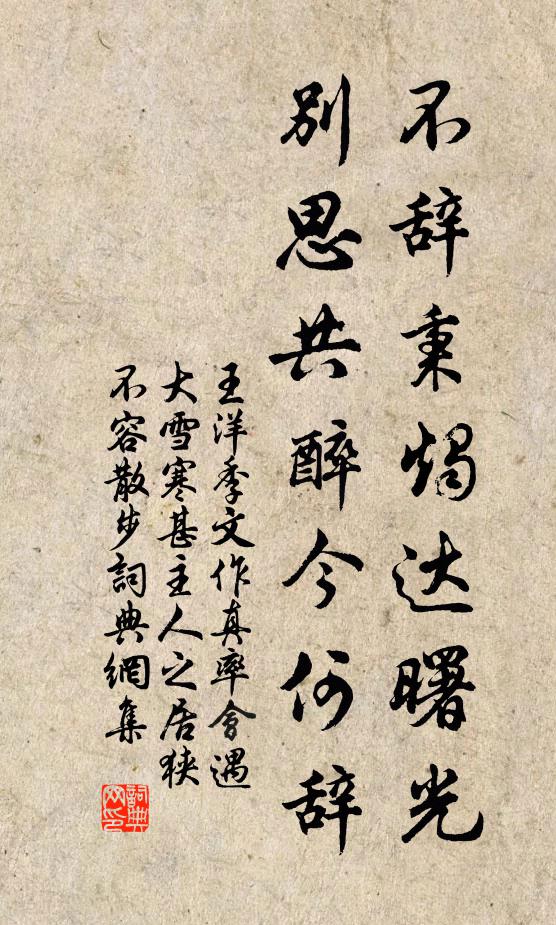 不辞秉烛达曙光
别思共醉今何辞
王洋季文作真率會遇
大雪寒甚主人之居狹
不容散步詞典網集
詞典
网印